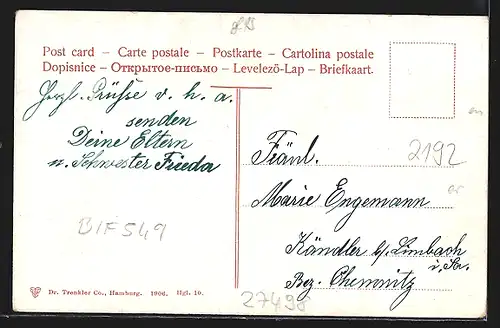 Post card – Carte postale – Postkarte – Cartolina postale
Dopisnice – Открытое-письмо – Levelező-Lap – Briefkaart.
Herzl. Grüsse v. h. a.
senden
Deine Eltern
u. Schwester Frieda
Fräul.
2192
Marie Engemann
Kändler b/ Limbach
i. Sa.
Bez. Chemnitz
BIF549
Dr. Trenkler Co., Hamburg. 1906. Hgl. 10.
27498